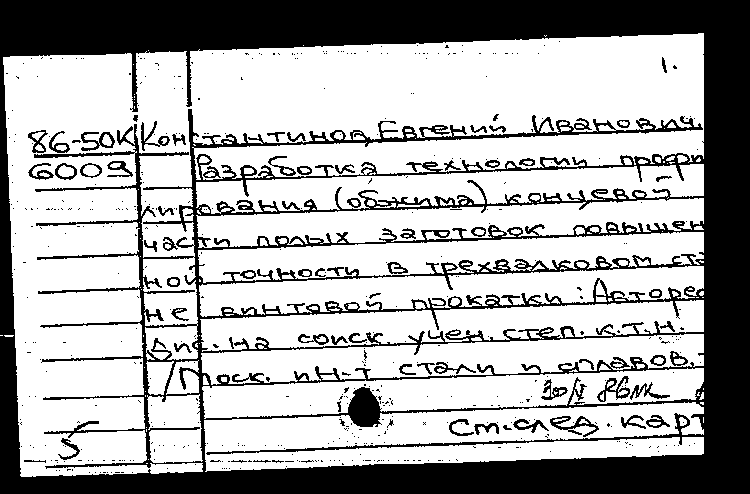 1.
86-50К Константинов, Евгений Иванович.
6009 Разработка технологии профи
лирования (обжима) концевой
части полых заготовок повышен
ной точности в трехвалковом ста
не винтовой прокатки: Авторе
дис. на соиск. учен. степ. к.т.н.
/Моск. ин-т стали и сплавов.
5 См. след. карт